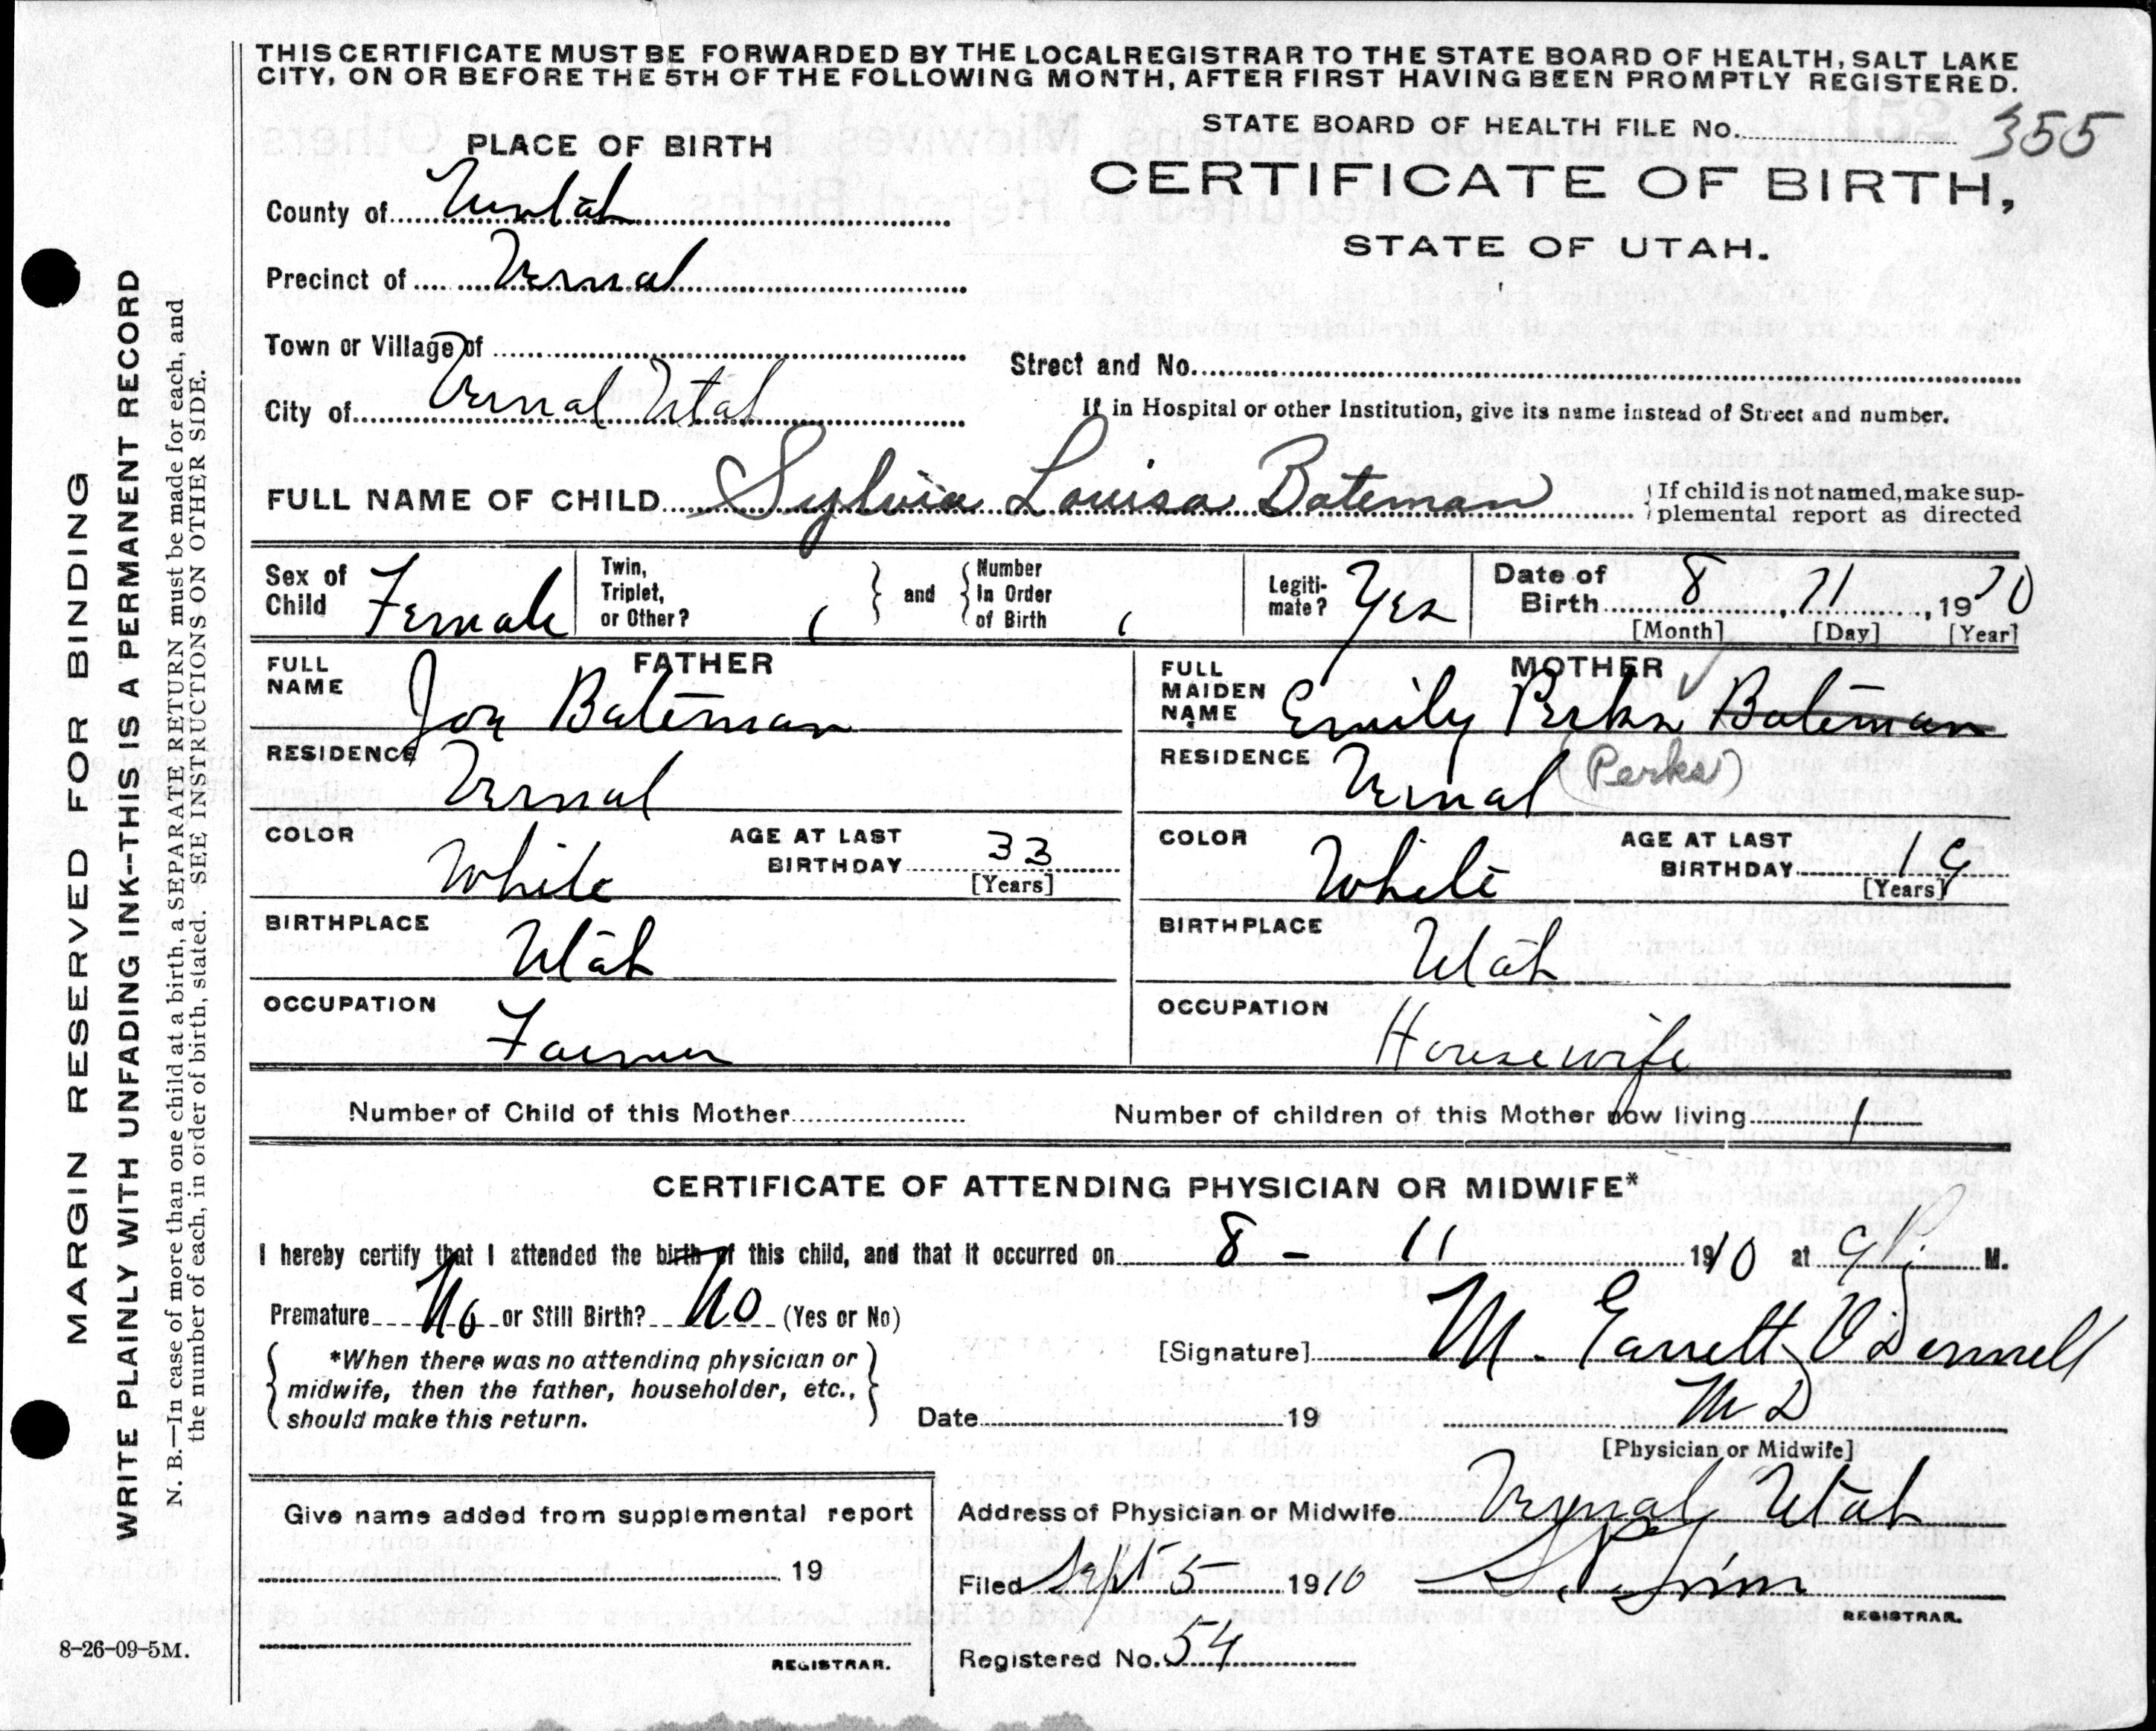 THIS CERTIFICATE MUST BE FORWARDED BY THE LOCAL REGISTRAR TO THE STATE BOARD OF HEALTH, SALT LAKE
CITY, ON OR BEFORE THE 5TH OF THE FOLLOWING MONTH, AFTER FIRST HAVING BEEN PROMPTLY REGISTERED.
STATE BOARD OF HEALTH FILE No. 355
CERTIFICATE OF BIRTH,
STATE OF UTAH.
PLACE OF BIRTH
County of
Precinct of Vernal
Town or Village of
City of Vernal Utah
Street and No.
If in Hospital or other Institution, give its name instead of Street and number.
FULL NAME OF CHILD Sylvia Louisa Bateman
If child is not named, make sup-
plemental report as directed
Sex of Child Female
Twin, Triplet, or Other?
and
Number In Order of Birth
Legiti-mate? Yes
Date of Birth 8, 11, 1910
[Month] [Day] [Year]
FATHER
FULL NAME Joe Bateman
RESIDENCE Vernal
COLOR White
AGE AT LAST BIRTHDAY 33
[Years]
BIRTHPLACE Utah
OCCUPATION Farmer
MOTHER
FULL MAIDEN NAME Emily Perks Bateman
(Perks)
RESIDENCE Vernal
COLOR White
AGE AT LAST BIRTHDAY 19
[Years]
BIRTHPLACE Utah
OCCUPATION Housewife
Number of Child of this Mother
Number of children of this Mother now living 1
CERTIFICATE OF ATTENDING PHYSICIAN OR MIDWIFE*
I hereby certify that I attended the birth of this child, and that it occurred on 8 - 11 1910 at 9 P. M.
Premature No or Still Birth? No (Yes or No)
*When there was no attending physician or
midwife, then the father, householder, etc.,
should make this return.
[Signature] M. Garrett O'Donnell
Date 19
M D
[Physician or Midwife]
Give name added from supplemental report
19
REGISTRAR.
Address of Physician or Midwife Vernal Utah
Filed Sept 5 1910
REGISTRAR.
Registered No. 54
8-26-09-5M.
MARGIN RESERVED FOR BINDING
WRITE PLAINLY WITH UNFADING INK--THIS IS A PERMANENT RECORD
N. B.—In case of more than one child at a birth, a SEPARATE RETURN must be made for each, and
the number of each, in order of birth, stated. SEE INSTRUCTIONS ON OTHER SIDE.